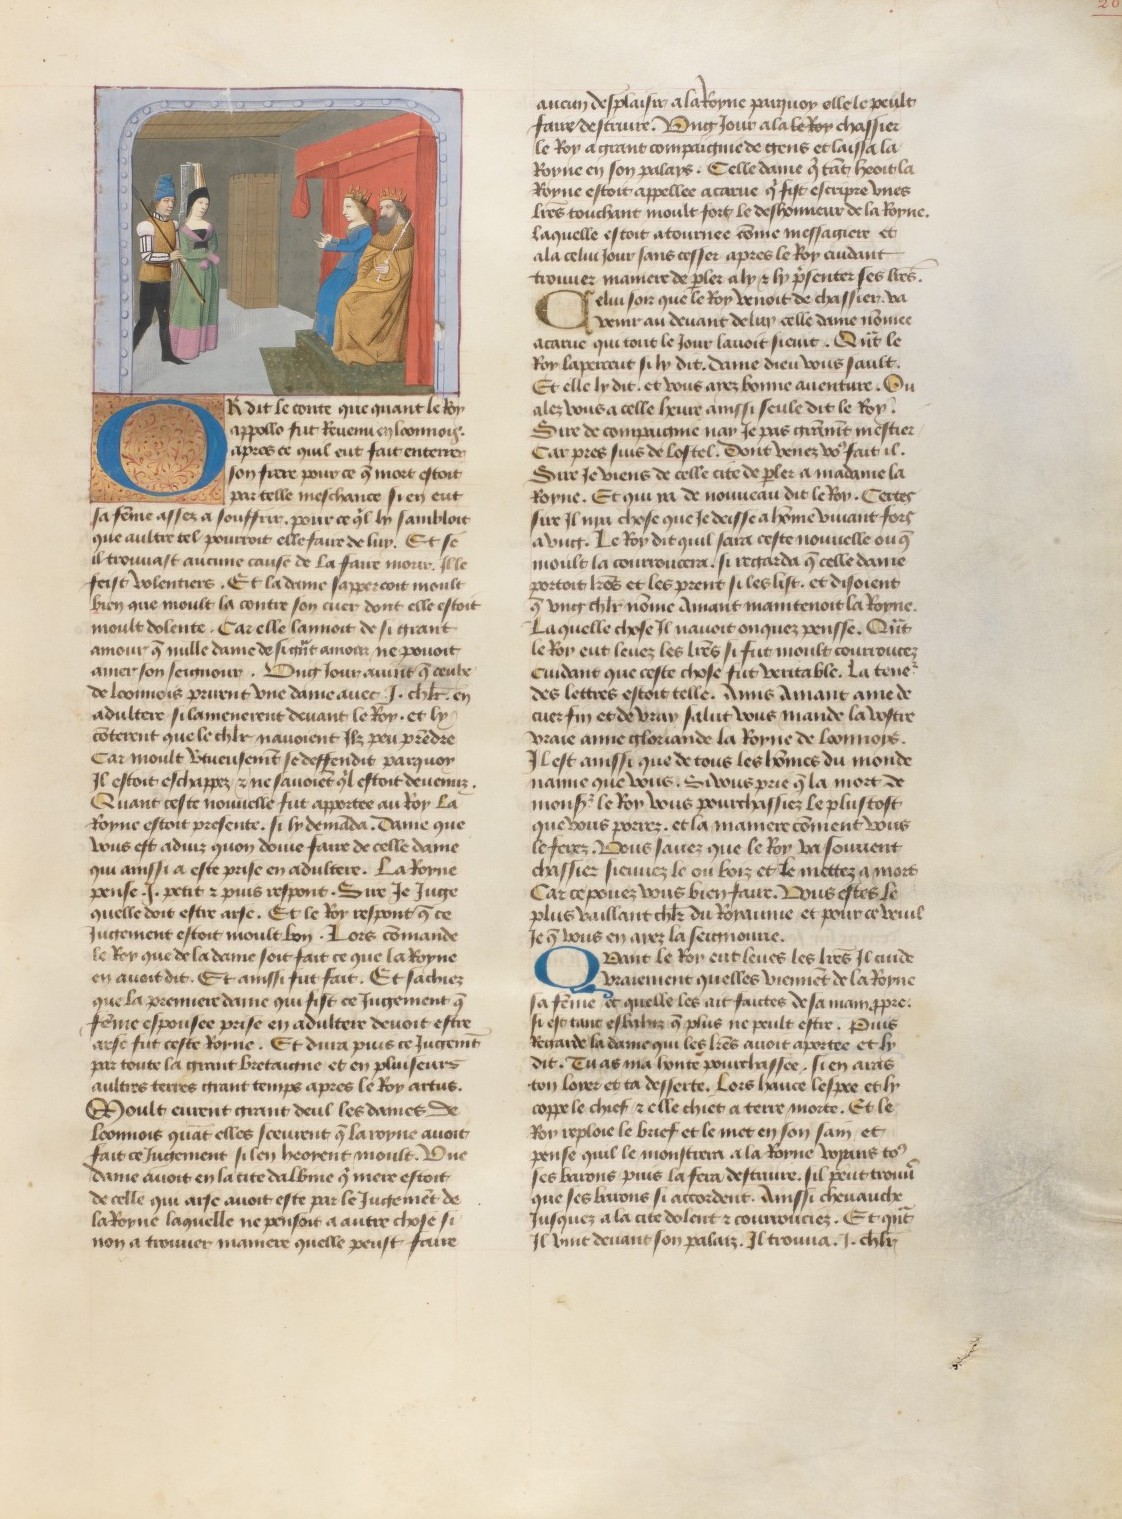 20
OR dit le conte que quant le Roy
appollo fut Revenu en loonnois.
apres ce quil eut fait enterrer
son frere pour ce q̄ mort estoit
par telle meschance si en eut
sa fēme assez a souffrir. pour ce q̄l ly sambloit
que aultre tel pourroit elle faire de luy. Et se
il trouvast aucune cause de la faire morir. Il le
feist volentiers. Et la dame sappercoit moult
bien que moult la contre son cuer dont elle estoit
moult dolente. Car elle lamoit de si grant
amour q̄ nulle dame de si gr̄nt amour ne pouoit
amer son seignour. Ung Jour avint q̄ ceulx
de loonnois prirent une dame avec .J. chl̄r. en
adultere si lamenerent devant le Roy. et ly
cōterent que le chl̄r navoient Ilz peu prēdre
Car moult vtueusemēt se deffendit parquoy
Il estoit eschappez ⁊ ne savoiēt q̄l estoit devenuz.
Quant ceste nouvelle fut apportee au Roy La
Royne estoit presente. si ly demāda. Dame que
vous est advis quon doive faire de celle dame
qui ainssi a este prise en adultere. La Royne
pense .J. petit ⁊ puis respont. Sire Je Juge
quelle doit estre arse. Et le Roy respont q̄ ce
Jugement estoit moult bon. Lors cōmande
le Roy que de la dame soit fait ce que la Royne
en avoit dit. Et ainssi fut fait. Et sachiez
que la premiere dame qui fist ce Jugement q̄
fēme espousee prise en adultere devoit estre
arse fut ceste Royne. Et dura puis ce Jugemēt
par toute la grant bretaigne et en pluiseurs
aultres terres grant temps apres le Roy artus.
Moult eurent grant deul les dames de
loonnois quāt elles sceurent q̄ la royne avoit
fait ce Jugement si len heoient moult. Une
dame avoit en la cite dalbine q̄ mere estoit
de celle qui arse avoit este par le Jugemēt de
la Royne laquelle ne pensoit a autre chose si
non a trouver maniere quelle peust faire
aucun desplaisir a la Royne parquoy elle le peult
faire destruire. Ung Jour ala le Roy chassier
le Roy a grant compaignie de gens et laissa la
Royne en son palays. Celle dame q̄ tāt heoit la
Royne estoit appellee acarue q̄ fist escripre unes
lr̄es touchant moult fort le deshonneur de la Royne.
laquelle estoit atournee cōme messagiere et
ala celui Jour sans cesser apres le Roy cuidant
trouver maniere de pler a ly ⁊ ly p̄senter ses lr̄es.
Celui soir que le Roy venoit de chassier. va
venir au devant de luy celle dame nōmee
acarue qui tout le Jour lavoit sieuit. Qn̄t le
Roy laperceut si ly dit. dame dieu vous sault.
Et elle ly dit. et vous ayez bonne aventure. Ou
alez vous a celle heure ainssi seule dit le Roy.
Sire de compaignie nay Je pas gramnt mestier
Car pres suis de lostel. Dont venez vo⁹ fait il.
Sire Je viens de celle cite de pler a madame la
Royne. Et qui ya de nouveau dit le Roy. Certes
sire Il nya chose que Je deisse a hōme vivant fors
a vng. Le Roy dit quil sara ceste nouvelle ou q̄
moult la courroucera. si regarda q̄ celle dame
portoit lr̄es et les prent si les list. et disoient
q̄ vng chl̄r nōme Amant maintenoit la Royne.
Laquelle chose Il navoit onquez pensse. Qn̄t
le Roy eut leuez les lr̄es si fut moult courroucez
cuidant que ceste chose fut veritable. La tene²
des lettres estoit telle. Amis Amant ame de
cuer fin et de vray salut vous mande la vostre
vraie amie gloriande la Royne de loonnois.
Il est ainssi que de tous les hōmes du monde
naime que vous. Si vous prie q̄ la mort de
monsr̄ le Roy vous pourchassiez le plus tost
que vous porrez. et la maniere cōment vous
le ferez. Vous savez que le Roy va souvent
chassier sieuviez le ou boiz et le mettez a mort
Car ce pouez vous bien faire. Vous estes le
plus vaillant chl̄r du Royaume et pour ce veuil
Je q̄ vous en ayez la seignourie.
Quant le Roy eut leues les lr̄es Il cuide
vraiement quelles viennēt de la Royne
sa fēme et quelle les ait faictes de sa main ppre.
si est tant esbahiz q̄ plus ne peult estre. Puis
Regarde la dame qui les lr̄es avoit aportee et ly
dit. Tu as ma honte pourchassee. si en aras
ton loyer et ta desserte. Lors hauce lespee et ly
coppe le chief ⁊ elle chiet a terre morte. Et le
Roy reploie le brief et le met en son sain et
pense quil le monstrera a la Royne voyans to⁹
ses barons puis la fera destruire. sil peut trouv̄
que ses barons si accordent. Ainssi chevauche
Jusquez a la cite dolent ⁊ courrouciez. Et qn̄t
Il vint devant son palaiz. Il trouva .J. chl̄r